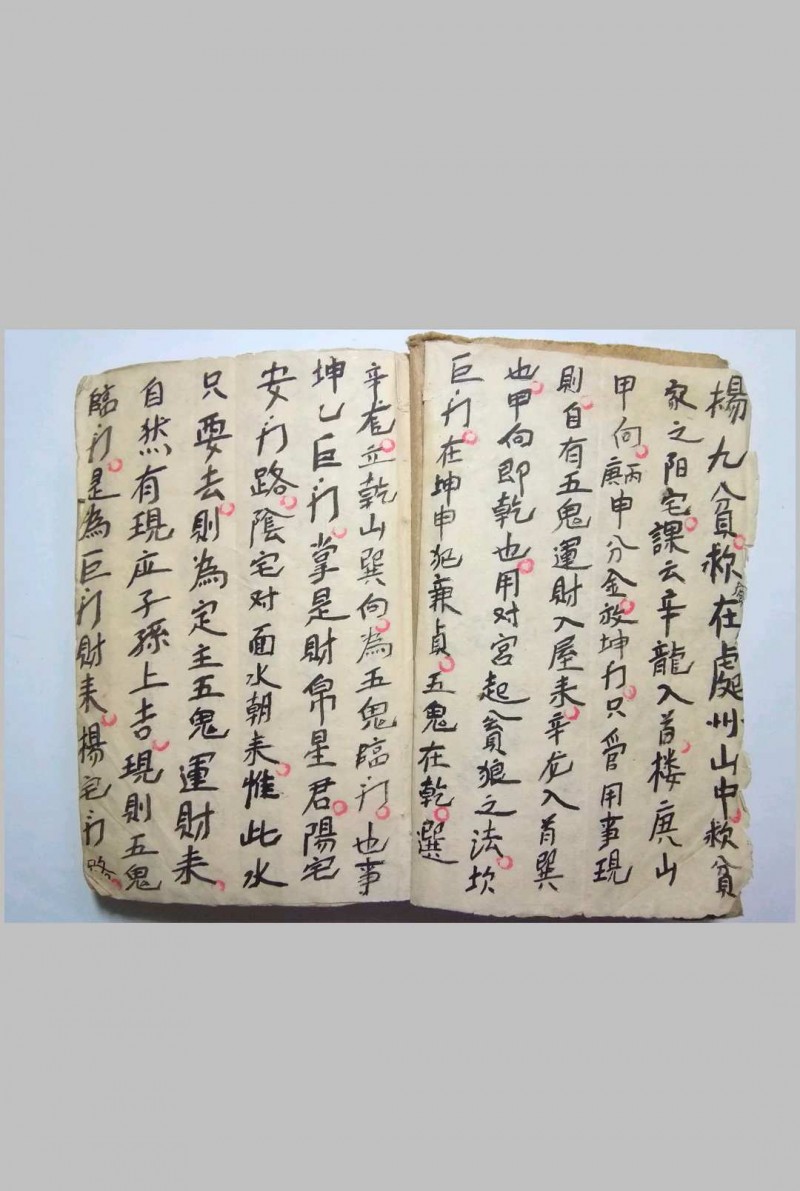 楊九貧救在處州山中救貧
家之阳宅課云辛龍入首楼庚山
甲向庚丙申分金放坤门只管用事現
則自有五鬼運財入屋来辛龙入首巽
也甲向即乾也用对宮起貪狼之法坎
巨门在坤申犯兼貞五鬼在乾選
辛龙立乾山巽向為五鬼臨门也事
坤乙巨门掌是財帛星君陽宅
安门路陰宅对面水朝来惟此水
只要去則為定主五鬼運財来
自然有現应子孫上吉現則五鬼
臨门是為巨门財来揚宅门路